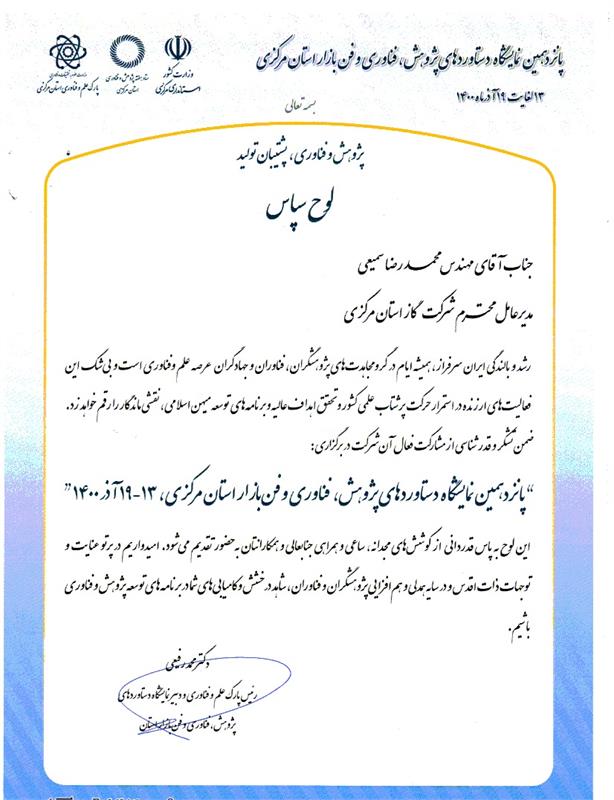 پانزدهمین نمایشگاه دستاوردهای پژوهش، فناوری و فن بازار استان مرکزی
۱۳ لغایت ۱۹ آذرماه ۱۴۰۰
وزارت کشور
استانداری مرکزی
ستاد هفته پژوهش و فناوری
استان مرکزی
وزارت علوم، تحقیقات و فناوری
پارک علم و فناوری استان مرکزی
بسمه تعالی
پژوهش و فناوری، پشتیبان تولید
لوح سپاس
جناب آقای مهندس محمدرضا سمیعی
مدیرعامل محترم شرکت گاز استان مرکزی
رشد و بالندگی ایران سرفراز، همیشه ایام در گرو مجاهدت‌های پژوهشگران، فناوران و جهادگران عرصه علم و فناوری است و بی شک این
فعالیت‌های ارزنده در استمرار حرکت پرشتاب علمی کشور و تحقق اهداف عالیه و برنامه های توسعه میهن اسلامی، نقشی ماندگار را رقم خواهد زد.
ضمن تشکر و قدرشناسی از مشارکت فعال آن شرکت در برگزاری:
“پانزدهمین نمایشگاه دستاوردهای پژوهش، فناوری و فن بازار استان مرکزی، ۱۳-۱۹ آذر ۱۴۰۰”
این لوح به پاس قدردانی از کوشش‌های مجدانه، ساعی و همراهی جنابعالی و همکارانتان به حضور تقدیم می‌شود. امیدواریم در پرتو عنایت و
توجهات ذات اقدس و در سایه همدلی و هم افزایی پژوهشگران و فناوران، شاهد درخشش و کامیابی‌های شما در برنامه های توسعه پژوهش و فناوری
باشیم.
دکتر محمد رفیعی
رئیس پارک علم و فناوری و دبیر نمایشگاه دستاوردهای
پژوهش، فناوری و فن بازار استان